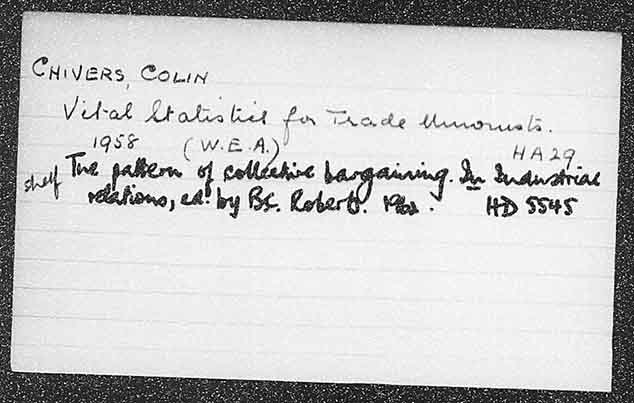 CHIVERS, COLIN
Vital Statistics for Trade Unionists.
1958 (W.E.A.) HA29
shelf The pattern of collective bargaining. In Industrial
relations, ed. by B.C. Roberts. HD 5545